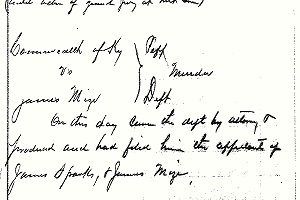 (until action of grand jury at next term)
Commonwealth of Ky } Plff
vs } Murder
James Mize } Deft
On this day came the deft by attorney &
produced and had filed him the affidavits of
James Sparks, & James Mize,